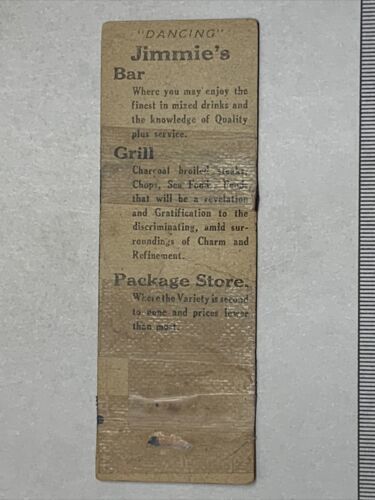 "DANCING"
Jimmie's
Bar
Where you may enjoy the
finest in mixed drinks and
the knowledge of Quality
plus service.
Grill
Charcoal broiled steaks,
Chops, Sea Foods, Foods
that will be a revelation
and Gratification to the
discriminating, amid sur-
roundings of Charm and
Refinement.
Package Store.
Where the Variety is second
to none and prices lower
than most.